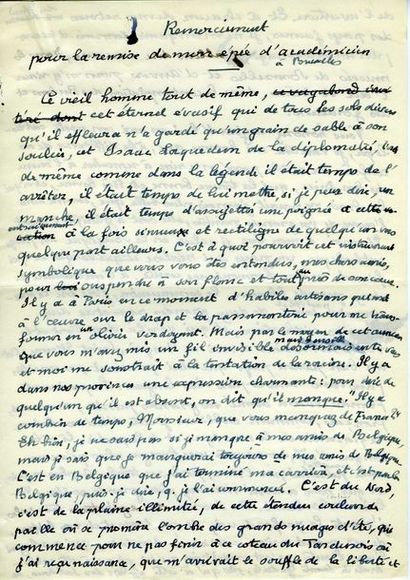 Remerciement
pour la remise de mon épée d'académicien
à Bruxelles
Le vieil homme tout de même, ce vagabond
cet éternel évasif qui de tous les sols divers
qu'il effleura n'a gardé qu'un grain de sable à son
soulier, cet Isaac Laquedem de la diplomatie, tout
de même comme dans la légende il était temps de l'
arrêter, il était temps de lui mettre, si je puis dire, un
manche, il était temps d'assujettir une poignée à cette
à la fois sinueuse et rectiligne de quelqu'un vers
quelque part ailleurs. C'est à quoi pourvoit cet instrument
symbolique que vous vous êtes entendus, mes chers amis,
pour suspendre à son flanc et tout près de son cœur.
Il y a à Paris en ce moment d'habiles artisans qui sont
à l'œuvre sur le drap et la passementerie pour me trans
former en un olivier verdoyant. Mais par le moyen de cet
que vous m'avez mis un fil invisible désormais entre vous
et moi me soustrait à la tentation de la racine. Il y a
dans nos provinces une expression charmante : pour dire de
quelqu'un qu'il est absent, on dit qu'il manque. "Il y a
combien de temps, Monsieur, que vous manquez de France ?"
Eh bien, je ne sais pas si je manque à mes amis de Belgique,
mais je sais que je manquerai toujours de mes amis de Belgique.
C'est en Belgique que j'ai terminé ma carrière, et c'est par la
Belgique, puis-je dire, que je l'ai commencée. C'est du Nord,
c'est de la plaine illimitée, de cette étendue
pareille où se promène l'ombre des grands nuages d'été, qui
commence pour ne pas finir à ce coteau du Tardenois où
j'ai reçu naissance, que m'arrivait le souffle de la liberté et